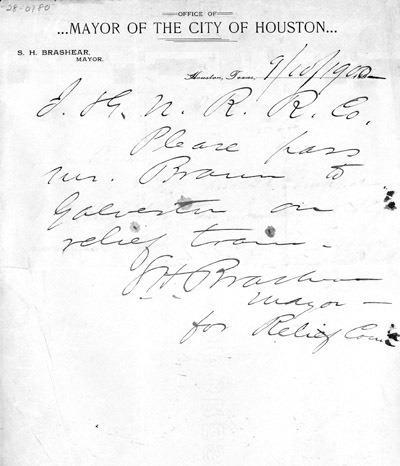 28-0180
OFFICE OF
...MAYOR OF THE CITY OF HOUSTON...
S. H. BRASHEAR,
MAYOR.
Houston, Texas, 9/10/1900
I. & G. N. R. R. Co.
Please pass
Mr. Braun to
Galveston on
relief train.
S. H. Brashear
Mayor
for Relief Com